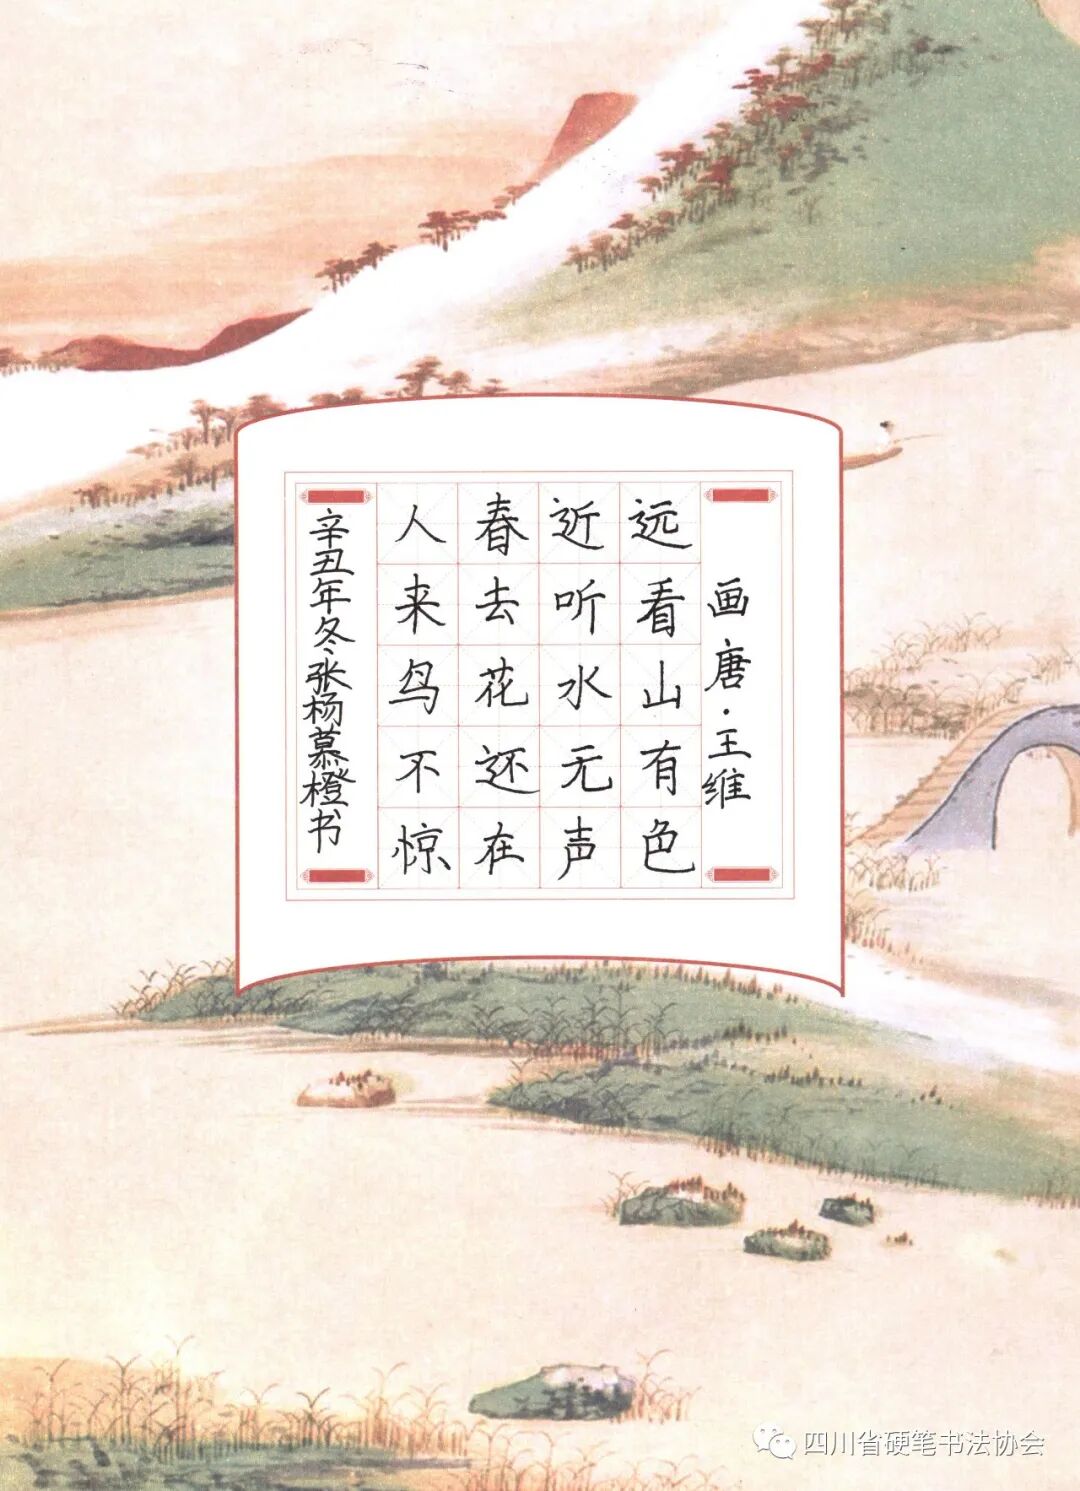 画 唐·王维
远看山有色
近听水无声
春去花还在
人来鸟不惊
辛丑年冬张杨慕橙书
四川省硬笔书法协会